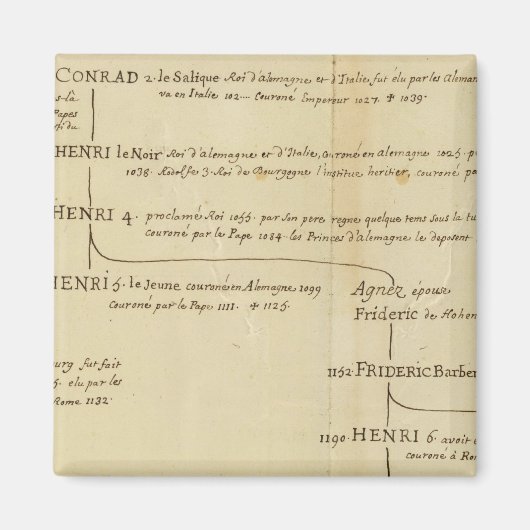 CONRAD 2. le Salique Roi d'Alemagne et d'Italie, fut élu par les Aleman
va en Italie 102.... Couroné Empereur 1027. ✠ 1039.
s-là
Papes
fi du
HENRI le Noir Roi d'alemagne et d'Italie, Couroné en alemagne 1025. p
1038. Rodolfe 3. Roi de Bourgogne l'institue heritier, couroné pa
HENRI 4. proclamé Roi 1055. par son pere regne quelque tems sous la tu
couroné par le Pape 1084. les Princes d'Alemagne le deposent
HENRI 5. le Jeune couroné en Alemagne 1099
Couroné par le Pape 1111. ✠ 1125.
Agnez epouse
Frideric de Hohen
ourg fut fait
5. elu par les
Rome 1132.
1152. FRIDERIC Barber
1190. HENRI 6. avoit e
couroné à Ro